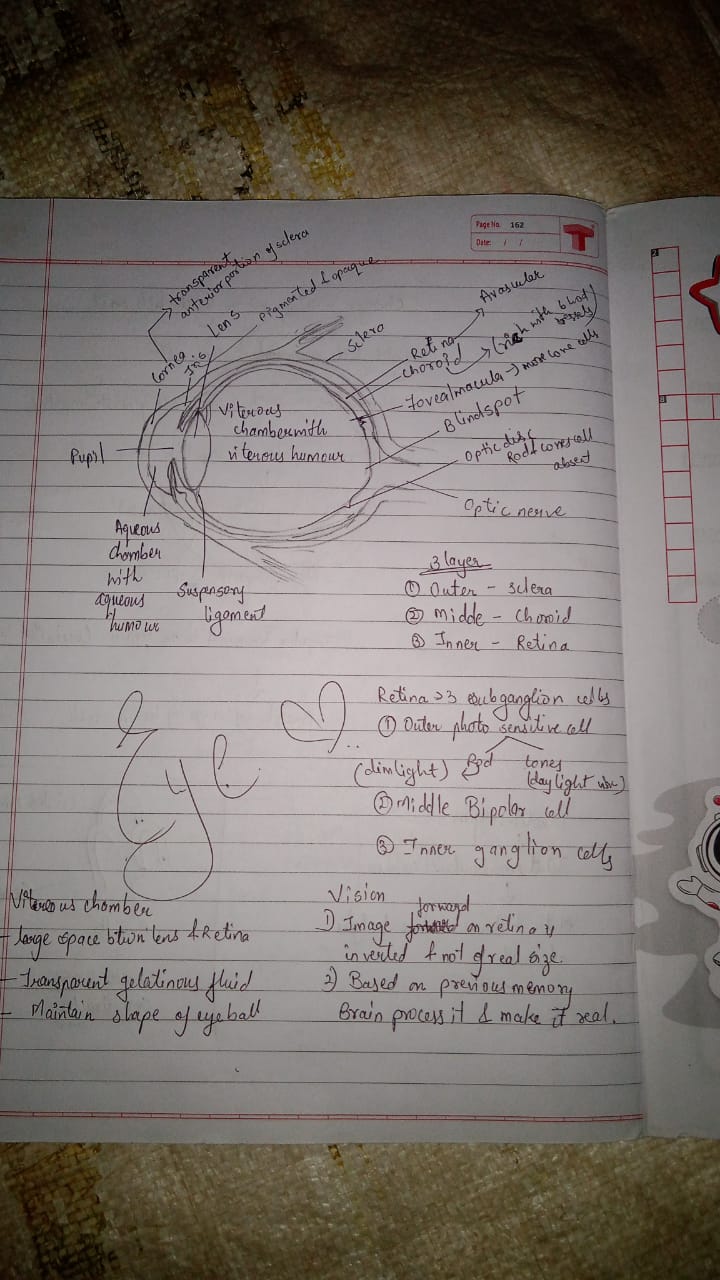 Page No. 162
Date: / /
T
transparent
anterior portion of sclera
Lens
pigmented & opaque
Cornea
Iris
Sclera
Avascular
Retina
Choroid
(rich with blood
vessels)
Fovea/macula → more cone cells
Blindspot
Optic disc
Rod & cones cell
absent
Optic nerve
Viterous
chamber with
viterous humour
Pupil
Aqueous
chamber
with
aqueous
humour
Suspensory
ligament
3 layer
① Outer - Sclera
② Midde - Choroid
③ Inner - Retina
Eye
Retina → 3 subganglion cells
① Outer photo sensitive cell
(dimlight) Rod cones
(daylight
② Middle Bipolar cell
③ Inner ganglion cells
Vitereous chamber
- large space btwn lens & Retina
- Transparent gelatinous fluid
- Maintain shape of eyeball
Vision
forward
1) Image on retina is
inverted & not of real size.
2) Based on previous memory
Brain process it & make it real.
2
3